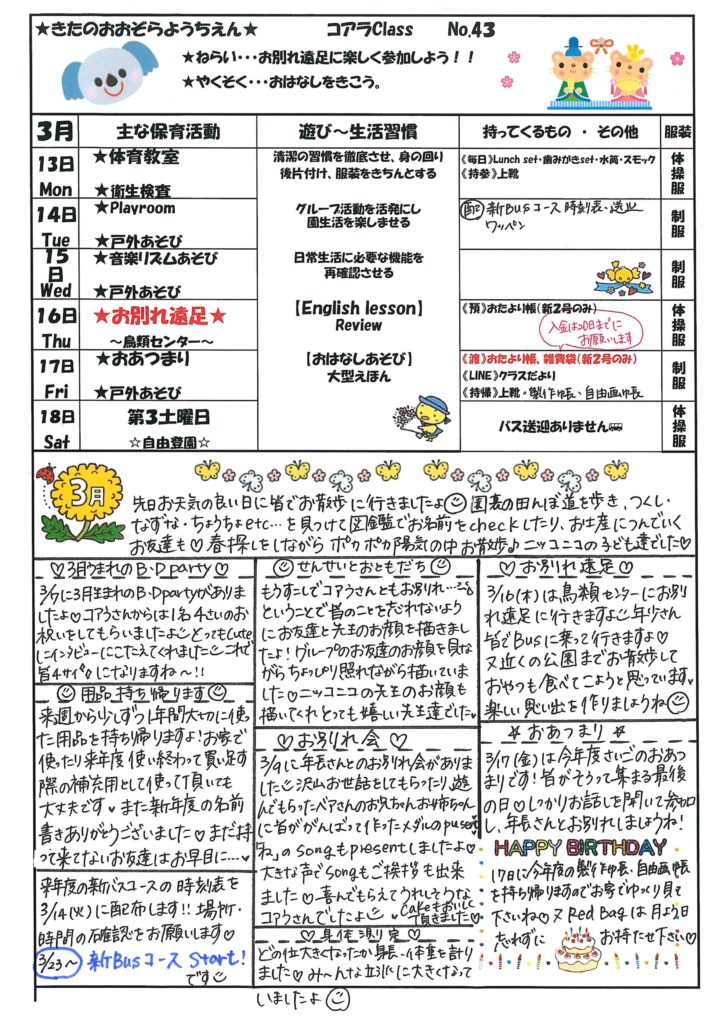 ★きたのおおぞらようちえん★ コアラClass No.43
★ねらい・・・お別れ遠足に楽しく参加しよう！！
★やくそく・・・おはなしをきこう。
3月 主な保育活動 遊び～生活習慣 持ってくるもの ・ その他 服装
13日 Mon
★体育教室
★衛生検査
清潔の習慣を徹底させ、身の回り
後片付け、服装をきちんとする
《毎日》Lunch set・歯みがきset・水筒・スモック
《持参》上靴
体操服
14日 Tue
★Playroom
★戸外あそび
グループ活動を活発にし
園生活を楽しませる
配 新Busコース時刻表、送迎
ワッペン
制服
15日 Wed
★音楽リズムあそび
★戸外あそび
日常生活に必要な機能を
再確認させる
制服
16日 Thu
★お別れ遠足★
～鳥類センター～
【English lesson】
Review
《預》おたより帳（新2号のみ）
入金は20日までに
お願いします
体操服
17日 Fri
★おあつまり
★戸外あそび
【おはなしあそび】
大型えほん
《渡》おたより帳、雑費袋（新2号のみ）
《LINE》クラスだより
《持帰》上靴・製作帳、自由画帳
制服
18日 Sat
第3土曜日
☆自由登園☆
バス送迎ありません
体操服
3月
先日お天気の良い日に皆でお散歩に行きましたよ 園裏の田んぼ道を歩き、つくし・
なずな・ちょうちょetc…を見つけて図鑑でお名前をcheckしたり、お土産につんでいく
お友達も♡春探しをしながらポカポカ陽気の中お散歩♪ニッコニコの子ども達でした♡
♡3月うまれのB・D party♡
3/7に3月生まれのB・D partyがありま
したよ♡コアラさんからは1名4さいのお
祝いをしてもらいましたよ とってもcute
にインタビューにこたえてくれました これで
皆4サイになりますね～！！
用品持ち帰ります
来週から少しずつ1年間大切に使っ
た用品を持ち帰りますよ！お家で
使ったり来年度使い終わって買い足す
際の補充用として使って頂いても
大丈夫です♥また新年度の名前
書きありがとうございました♡まだ持
って来てないお友達はお早目に…♥
来年度の新バスコースの時刻表を
3/14(火)に配布します！！場所・
時間の確認をお願いします♡
3/23～ 新Busコース Start！
です
せんせいとおともだち
もうすこしでコアラさんともお別れ…
ということで皆のことを忘れないよう
にお友達と先生のお顔を描きまし
たよ！グループのお友達のお顔を見な
がらちょっぴり照れながら描いていま
した♡ニッコニコの先生のお顔も
描いてくれとっても嬉しい先生達でした♥
♡お別れ会♡
3/9に年長さんとのお別れ会がありま
した 沢山お世話をしてもらったり、遊
んでもらったベアさんのお兄ちゃんお姉ちゃん
に皆ががんばって作ったメダルのpresent
ね」のsongもpresentしましたよ♡
大きな声でsongもご挨拶も出来
ました♡喜んでもらえてうれしそうな
コアラさんでしたよ Cakeもおいしく
頂きました♡
♡身体測定♡
どの位大きくなったか身長・体重を計り
ました♡み～んな立派に大きくなって
いましたよ
♡お別れ遠足♡
3/16(木)は鳥類センターにお別
れ遠足に行きますよ 年少さん
皆でBusに乗って行きますよ♡
又近くの公園までお散歩して
おやつも食べてこようと思っています♥
楽しい思い出を作りましょうね
★おあつまり★
3/17(金)は今年度さいごのおあつ
まりです！皆がそろって集まる最後
の日♡しっかりお話しを聞いて参加
し、年長さんとお別れしましょうね！
HAPPY BIRTHDAY
17日に今年度の製作帳、自由画帳
を持ち帰りますのでお家でゆっくり見て
下さいね♡又Red Bagは月よう日
忘れずに お持たせ下さい♡